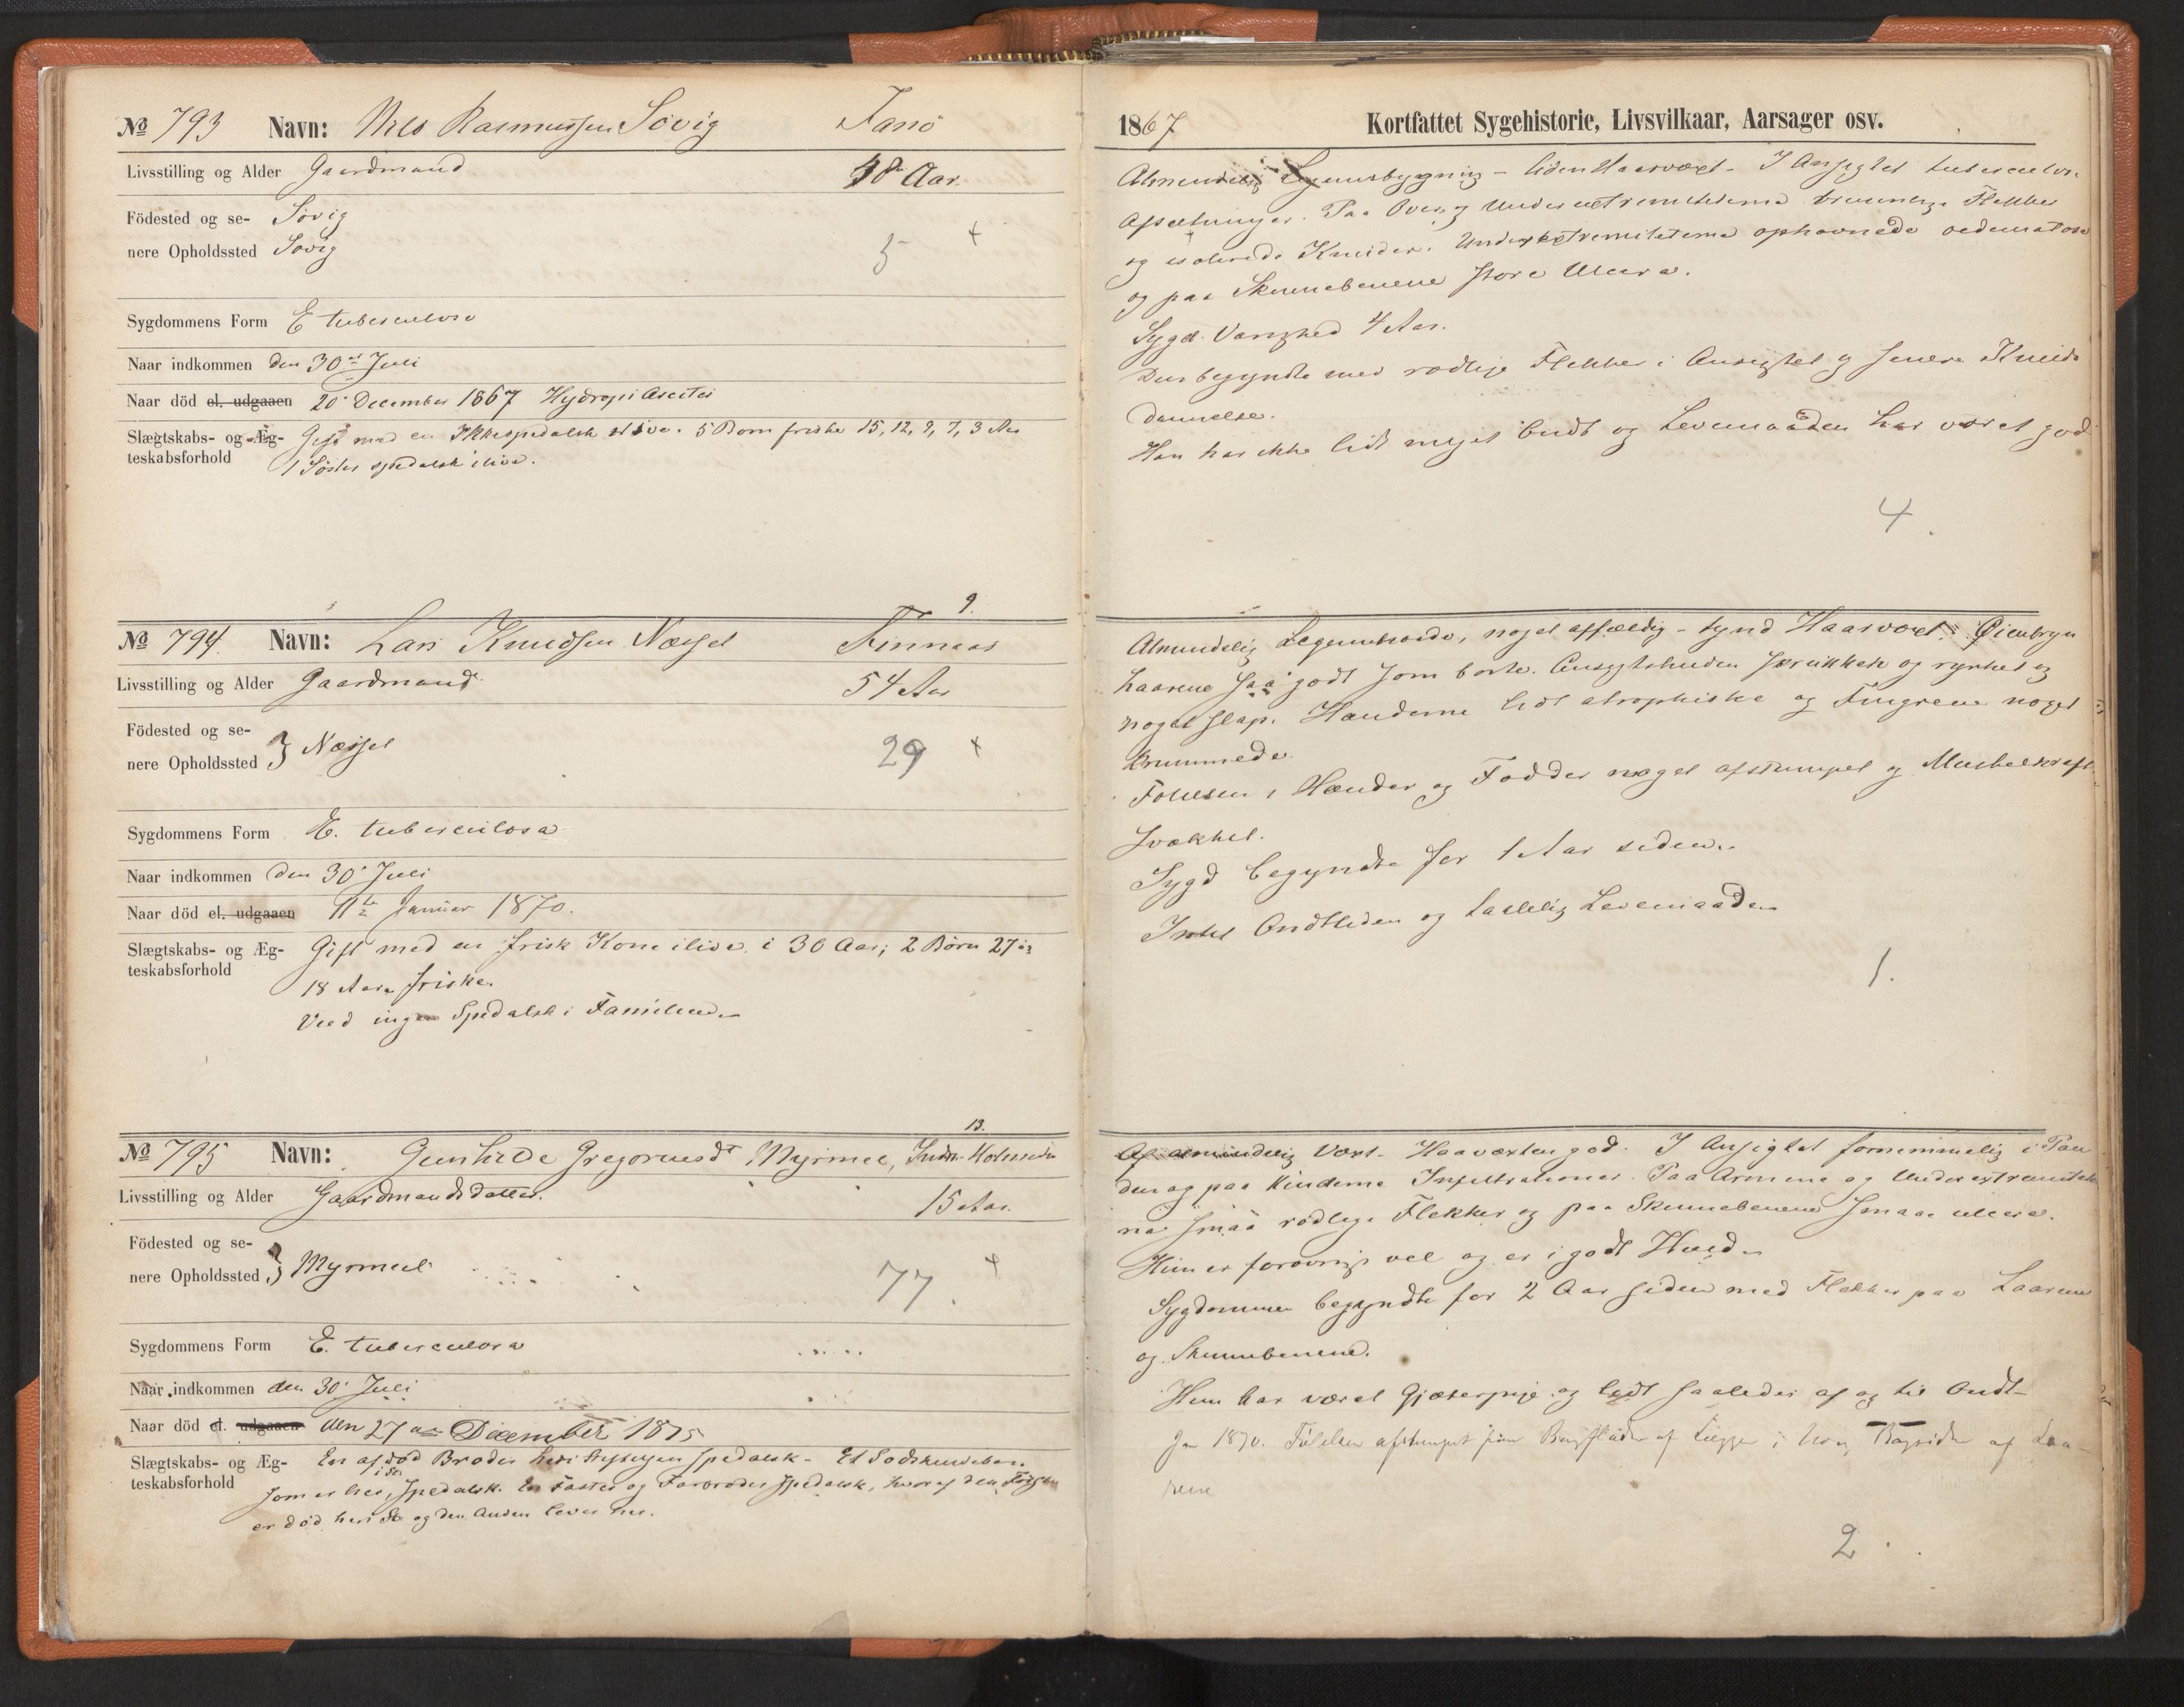 № 793 Navn: Nils Rasmussen Sövig Fanö
Livsstilling og Alder Gaardmand 48 Aar.
Födested og se- Sövig
nere Opholdssted Sövig
5 +
Sygdommens Form E tuberculosa
Naar indkommen den 30te Juli
Naar död el. udgaaen 20' December 1867 Hydrops Ascites
Slægtskabs- og Æg- Gift med en Ikkespedalsk ilive. 5 Börn friske 15, 12, 9, 7, 3 Aar
teskabsforhold 1 Söster spedalsk ilive.
9.
№ 794. Navn: Lars Knudsen Næssel Finnaas
Livsstilling og Alder Gaardmand 54 Aar
Födested og se-
nere Opholdssted } Næssel
29 +
Sygdommens Form E. tuberculosa
Naar indkommen den 30' Juli
Naar död el. udgaaen 11te Januar 1870.
Slægtskabs- og Æg- Gift med en frisk Kone ilive i 30 Aar; 2 Börn 27 og
teskabsforhold 18 Aar friske.
Veed ingen Spedalsk i Familien.
13.
№ 795 Navn: Gunhilde Gregoriusdr Myrmel, Indre Holmedal
Livsstilling og Alder Gaardmandsdatter. 15 Aar.
Födested og se-
nere Opholdssted } Myrmel
77. +
Sygdommens Form E. tuberculosa
Naar indkommen den 30' Juli
Naar död el. udgaaen den 27de December 1875
Slægtskabs- og Æg- En afdöd Broder her i Stiftelsen spedalsk - Et Södskendebarn
teskabsforhold som er her i St. Spedalsk. En Faster og Farbroder Spedalsk, hvoraf den Förste
er död her i St. og den Anden lever her.
1867 Kortfattet Sygehistorie, Livsvilkaar, Aarsager osv.
Almindelig Legemsbygning - liden Haarvæxt - I Ansigtet tuberculöse
Afsætninger. Paa Over og Underextremiteterne brunlige Flekker
og isolerede Knuder. Underextremiteterne ophovnede oedematöse
og paa Skinnebenene store Ulcera.
Sygd. Varighed 4 Aar.
Den begyndte med rödlige Flekker i Ansigtet og senere Knude
dannelse.
Han har ikke lidt meget Ondt og Levemaaden har været god
4.
Almindelig Legemshöide, noget affældig - tynd Haarvæxt. Öienbryn
haarene saa godt som borte. Ansigtshuden skrukket og rynket og
noget slap. Hænderne lidt atrophiske og Fingrene noget
krummede.
Fölelsen i Hænder og Födder noget afstumpet og Muskelkraft
svækket.
Sygd begyndte for 1 Aar siden.
Intet Ondtliden og taalelig Levemaade.
1.
Af almindelig Væxt - Haarvæxten god. I Ansigtet fornemmelig i Pan
den og paa Kinderne Infiltrationer. Paa Armene og Underextremitet
ne smaa rödlige Flekker og paa Skinnebenene smaae ulcera.
Hun er forövrigt vel og er i godt Huld.
Sygdommen begyndte for 2 Aar siden med Flekker paa Laarene
og Skinnebenene.
Hun har været Gjæterpige og lidt saaledes af og til Ondt -
Jan 1870. Fölelsen afstumpet paa Bagfladen af Lægge i Bagsiden af Laa-
rene
2.